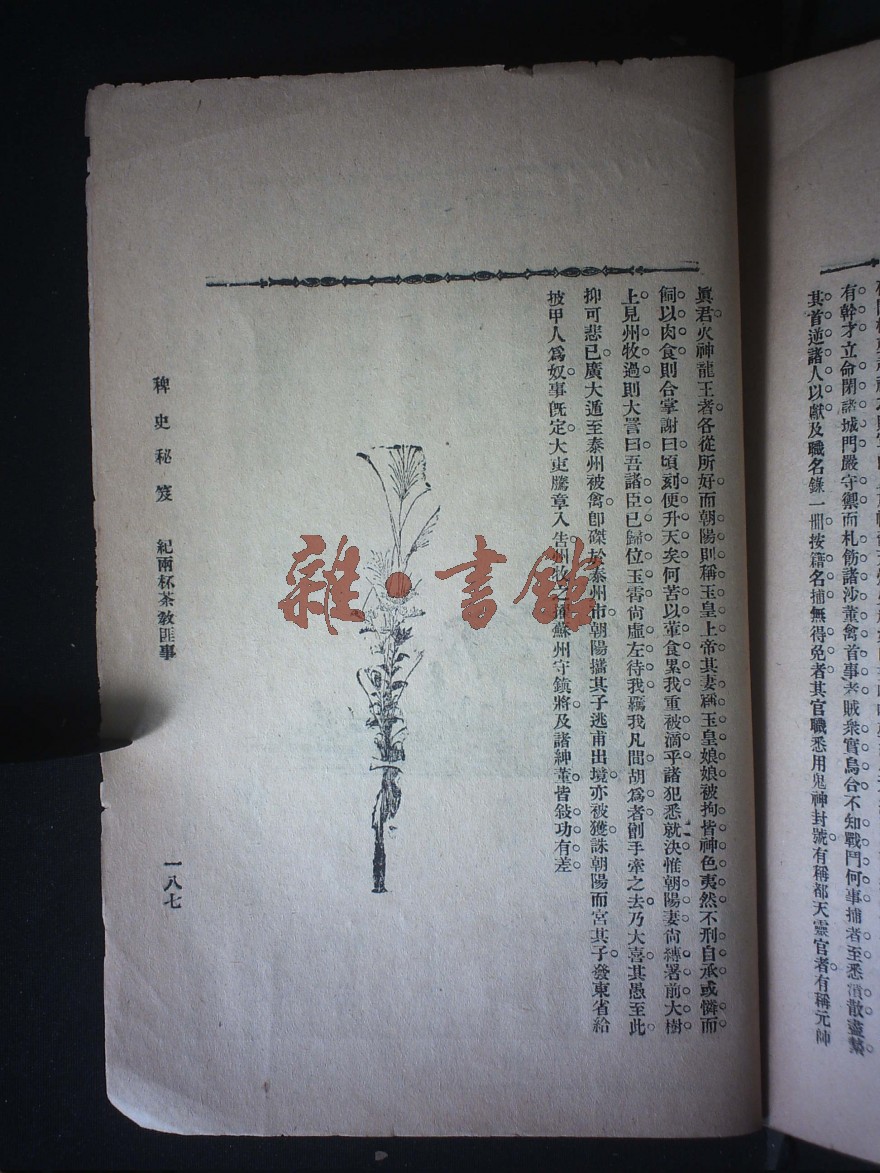 有幹才立命閉諸城門嚴守禦而札飭諸沙董禽首事者賊衆實烏合不知戰鬥何事捕者至悉潰散盡縶
其首逆諸人以獻及職名錄一冊按籍名捕無得免者其官職悉用鬼神封號有稱都天靈官者有稱元帥
眞君火神龍王者各從所好而朝陽則稱玉皇上帝其妻稱玉皇娘娘被拘皆神色夷然不刑自承或憐而
飼以肉食則合掌謝曰頃刻便升天矣何苦以葷食累我重被謫乎諸犯悉就決惟朝陽妻尙縛署前大樹
上見州牧過則大詈曰吾諸臣已歸位玉霄尙虛左待我羈我凡間胡爲者劊手牽之去乃大喜其愚至此
抑可悲已廣大遁至泰州被禽卽磔於泰州市朝陽攜其子逃甫出境亦被獲誅朝陽而宮其子發東省給
披甲人爲奴事旣定大吏騰章入告州牧之擢蘇州守鎭將及諸紳董皆敍功有差
稗史秘笈 紀兩杯茶敎匪事
一八七
雜·書館